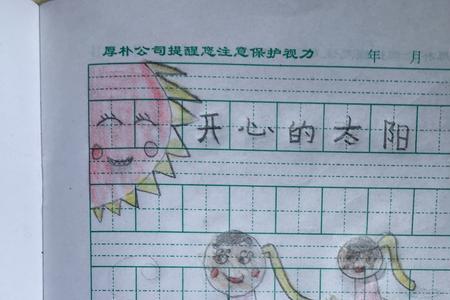 厚朴公司提醒您注意保护视力 年 月
开心的太阳